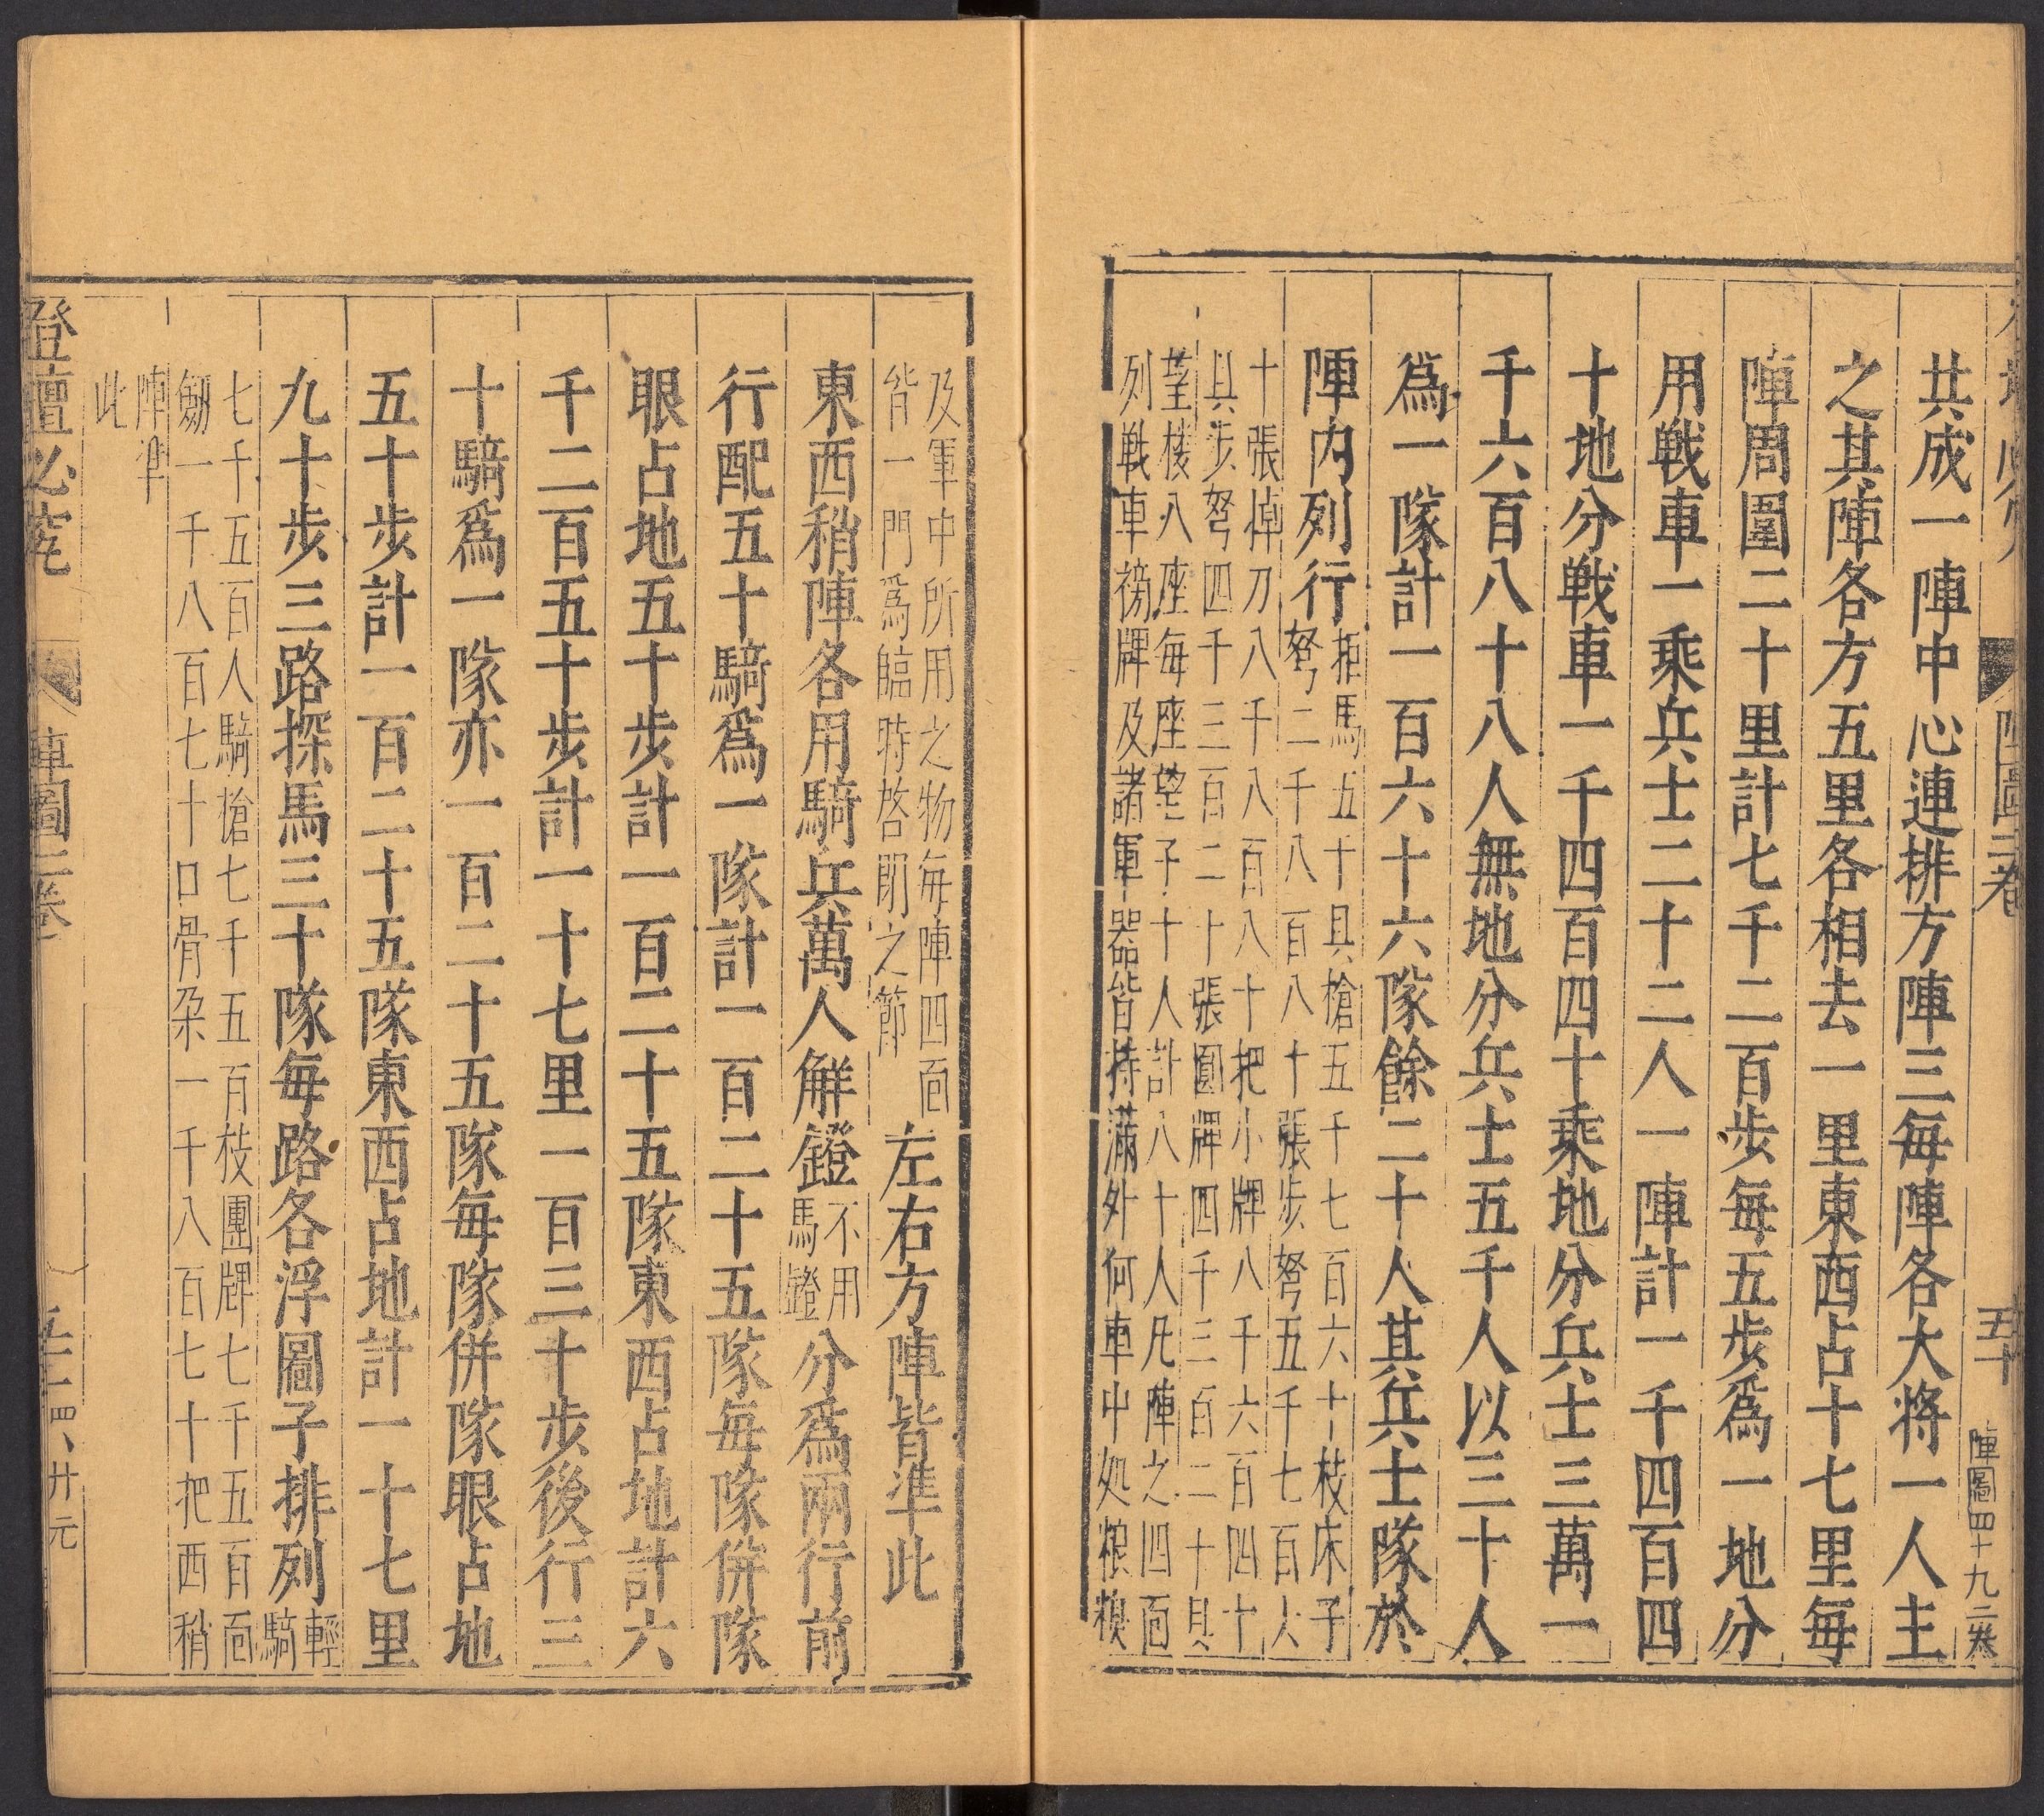 陣圖三卷
五十
陣圖四十九三卷
共成一陣中心連排方陣三每陣各大将一人主
之其陣各方五里各相去一里東西占十七里每
陣周圍二十里計七千二百步每五步爲一地分
用戦車一乘兵士二十二人一陣計一千四百四
十地分戦車一千四百四十乘地分兵士三萬一
千六百八十八人無地分兵士五千人以三十人
爲一隊計一百六十六隊餘二十人其兵士隊於
陣内列行
拒馬五十具槍五千七百六十枝床子
弩二千八百八十張步弩五千七百人
十張掉刀八千八百八十把小牌八千六百四十
具步弩四千三百二十張圓牌四千三百二十具
望樓八座每座望子十人計八十人凡陣之四面
列戦車搒牌及諸軍器皆持滿外何車中処粮糗
及軍中所用之物每陣四面
皆一門爲臨時啓閉之節
左右方陣皆準此
東西稍陣各用騎兵萬人解鐙
不用
馬鐙
分爲兩行前
行配五十騎爲一隊計一百二十五隊每隊併隊
眼占地五十步計一百二十五隊東西占地計六
千二百五十步計一十七里一百三十步後行三
十騎爲一隊亦一百二十五隊每隊併隊眼占地
五十步計一百二十五隊東西占地計一十七里
九十步三路探馬三十隊每路各浮圖子排列
輕
騎
七千五百人騎槍七千五百枝團牌七千五百面
劒一千八百七十口骨朶一千八百七十把西稍
陣準
此
登壇必究
陣圖三卷
四
廿元